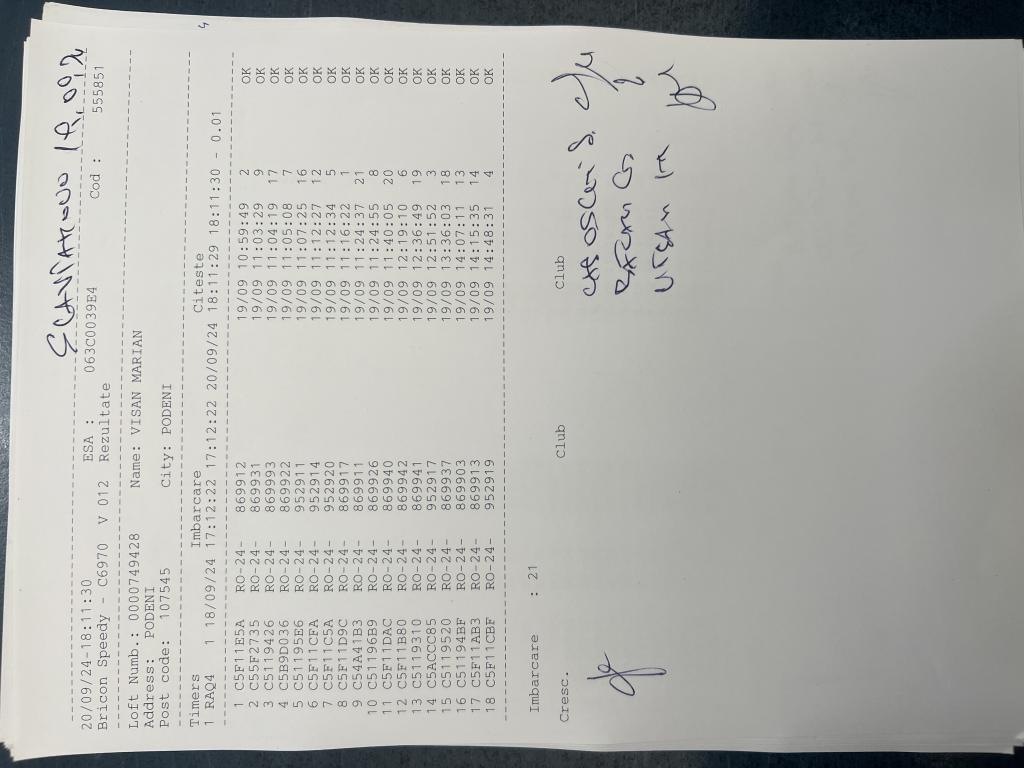 4
20/09/24-18:11:30 ESA : 063C0039E4 Cod : 555851
Bricon Speedy - C6970 V 012 Rezultate
Loft Numb.: 0000749428 Name: VISAN MARIAN
Address: PODENI
Post code: 107545 City: PODENI
Timers Imbarcare Citeste
1 RAQ4 1 18/09/24 17:12:22 17:12:22 20/09/24 18:11:29 18:11:30 - 0.01
1 C5F11E5A RO-24- 869912 19/09 10:59:49 2 OK
2 C55F2735 RO-24- 869931 19/09 11:03:29 9 OK
3 C5119426 RO-24- 869993 19/09 11:04:19 17 OK
4 C5B9D036 RO-24- 869922 19/09 11:05:08 7 OK
5 C51195E6 RO-24- 952911 19/09 11:07:25 16 OK
6 C5F11CFA RO-24- 952914 19/09 11:12:27 12 OK
7 C5F11C5A RO-24- 952920 19/09 11:12:34 5 OK
8 C5F11D9C RO-24- 869917 19/09 11:16:22 1 OK
9 C54A41B3 RO-24- 869911 19/09 11:24:37 21 OK
10 C51196B9 RO-24- 869926 19/09 11:24:55 8 OK
11 C5F11DAC RO-24- 869940 19/09 11:40:05 20 OK
12 C5F11B80 RO-24- 869942 19/09 12:19:10 6 OK
13 C5119310 RO-24- 869941 19/09 12:36:49 19 OK
14 C5ACCC85 RO-24- 952917 19/09 12:51:52 3 OK
15 C5119520 RO-24- 869937 19/09 13:36:03 18 OK
16 C51194BF RO-24- 869903 19/09 14:07:11 13 OK
17 C5F11AB3 RO-24- 869913 19/09 14:15:35 14 OK
18 C5F11CBF RO-24- 952919 19/09 14:48:31 4 OK
Imbarcare : 21
Cresc. Club Club